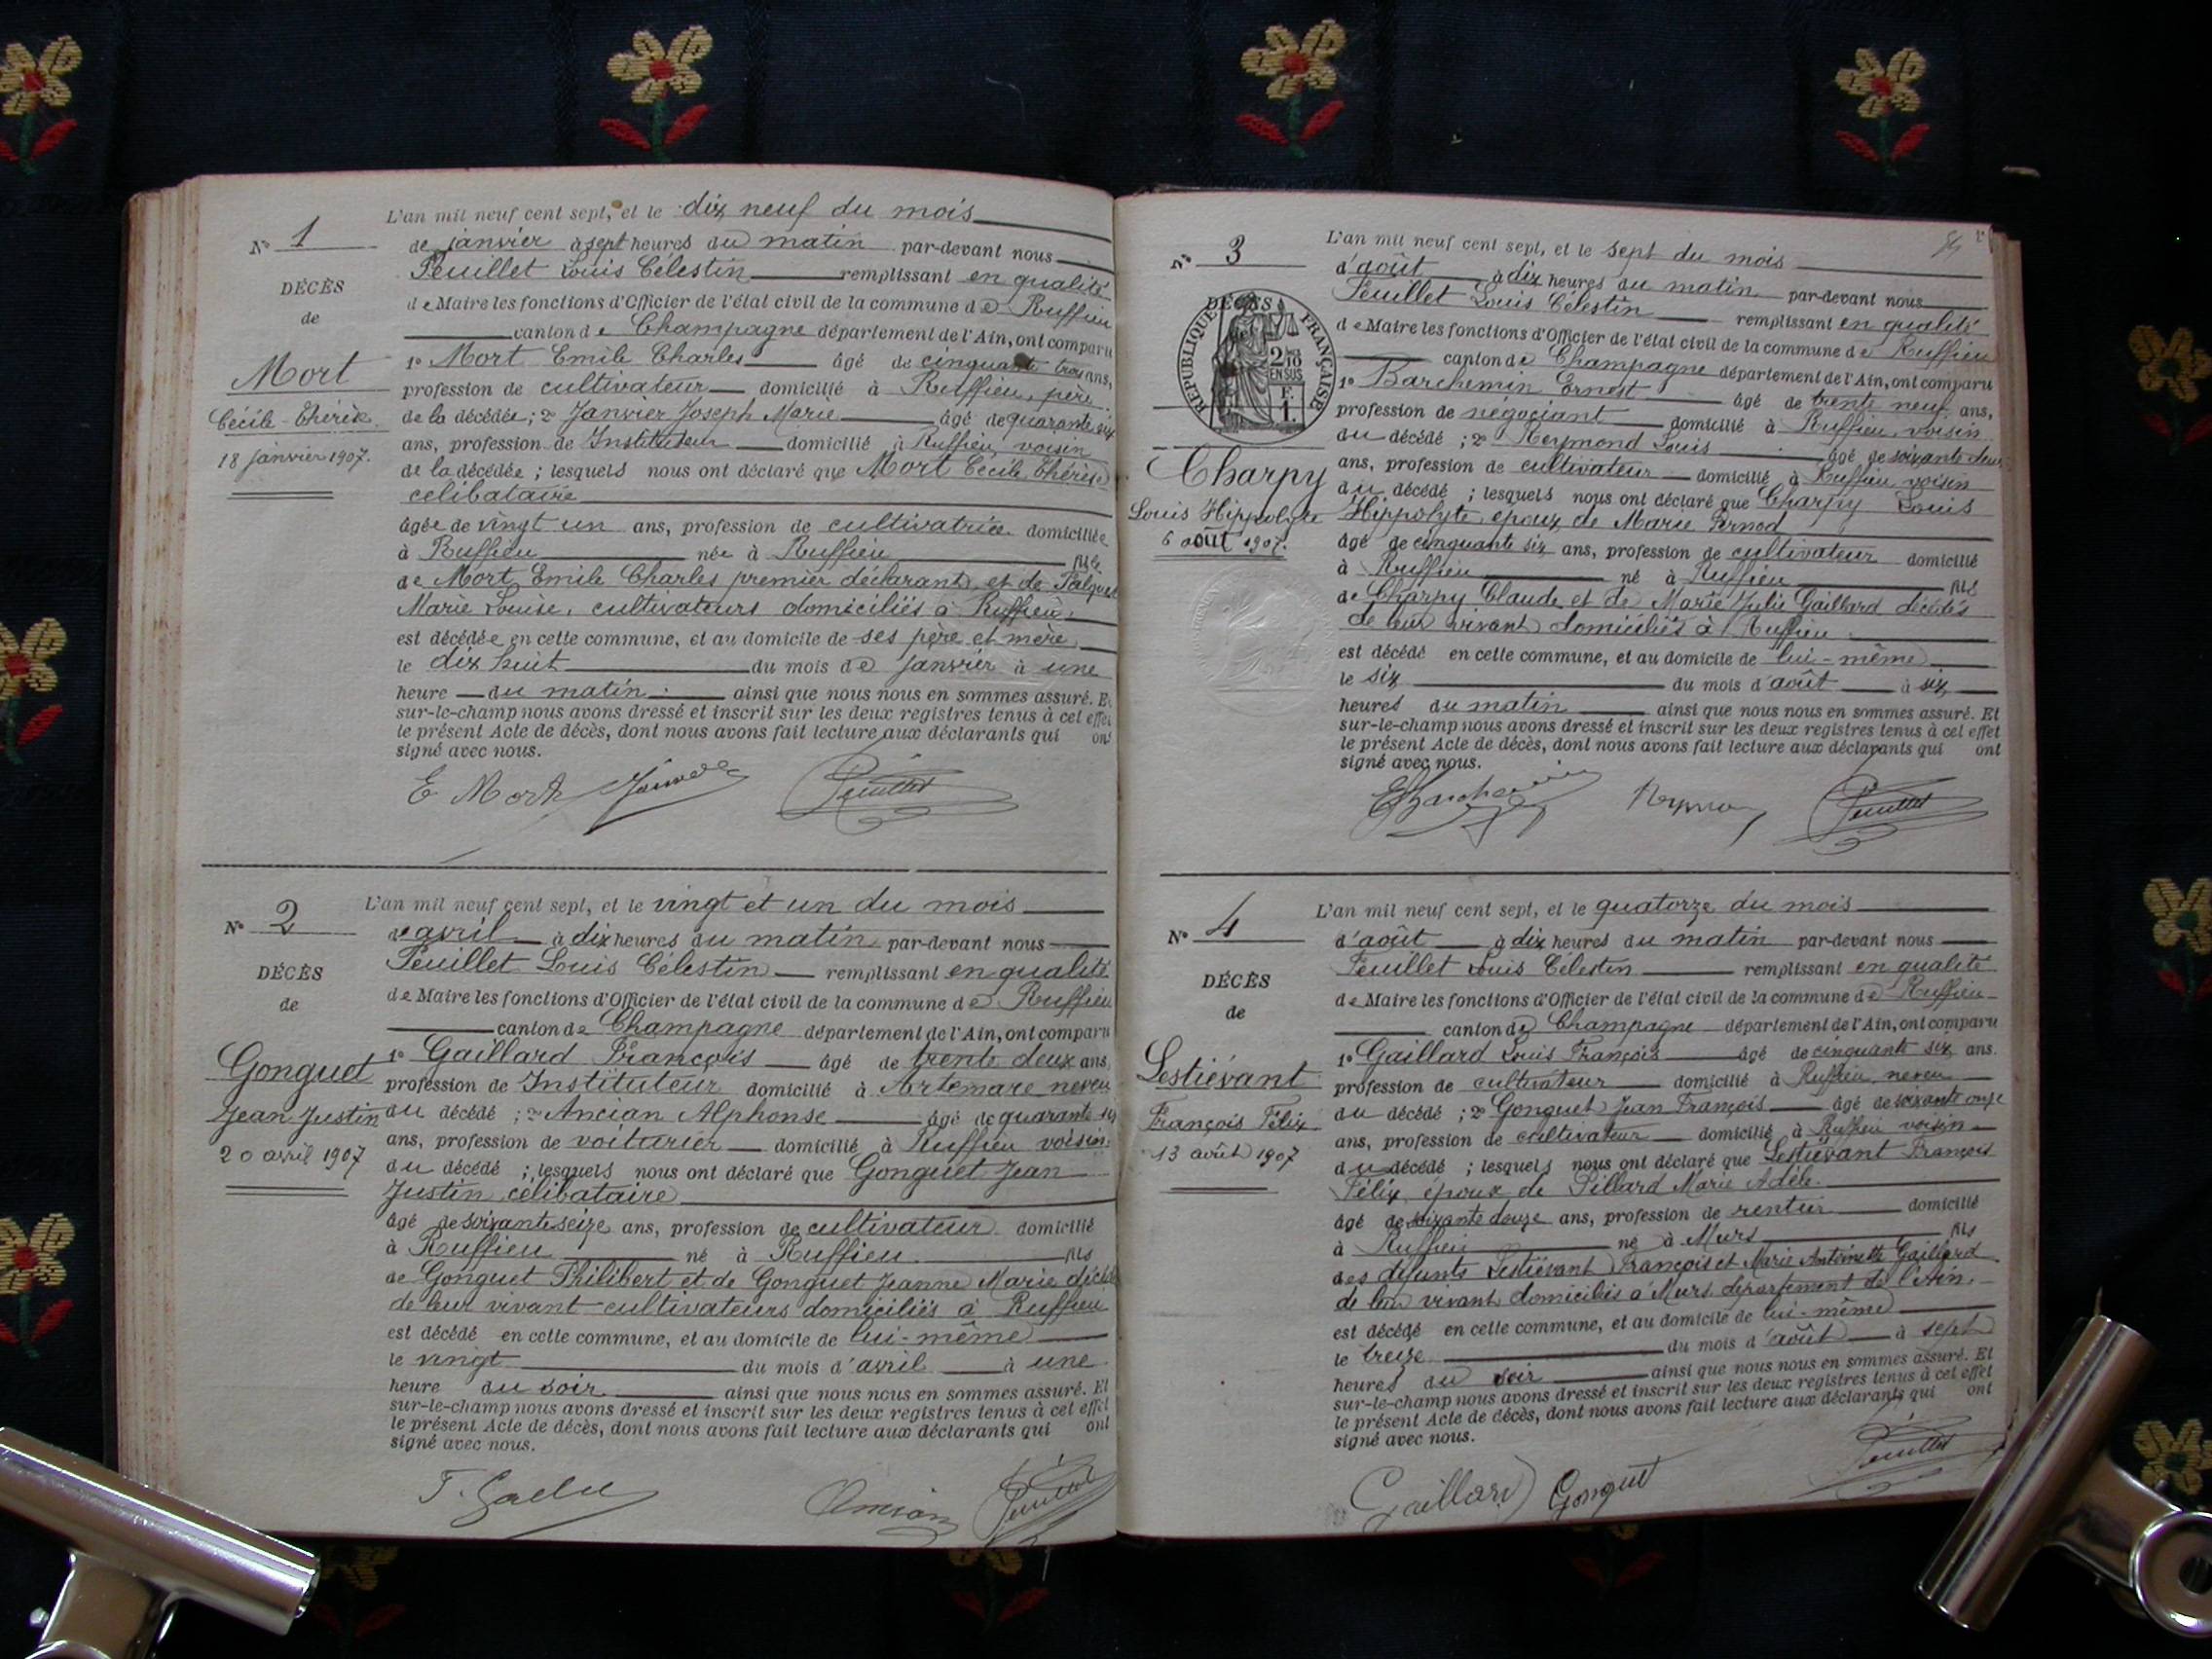 N° 1
DÉCÈS
de
Mort
Cécile-Thérèse
18 janvier 1907.
L'an mil neuf cent sept, et le dix neuf du mois
de janvier à sept heures du matin par-devant nous
Feuillet Louis Célestin remplissant en qualité
de Maire les fonctions d'Officier de l'état civil de la commune de Ruffieu
canton de Champagne département de l'Ain, ont comparu
1° Mort Emile Charles âgé de cinquante trois ans,
profession de cultivateur domicilié à Ruffieu, père
de la décédée ; 2° Janvier Joseph Marie âgé de quarante six
ans, profession de Instituteur domicilié à Ruffieu, voisin
de la décédée ; lesquels nous ont déclaré que Mort Cécile Thérèse
célibataire
âgée de vingt un ans, profession de cultivatrice domiciliée
à Ruffieu née à Ruffieu fille
de Mort Emile Charles premier déclarant, et de Falquet
Marie Louise, cultivateurs domiciliés à Ruffieu,
est décédée en cette commune, et au domicile de ses père et mère,
le dix huit du mois de janvier à une
heure du matin ainsi que nous nous en sommes assuré. Et
sur-le-champ nous avons dressé et inscrit sur les deux registres tenus à cet effet
le présent Acte de décès, dont nous avons fait lecture aux déclarants qui ont
signé avec nous.
E Mort Janvier Feuillet
N° 2
DÉCÈS
de
Gonguet
Jean Justin
20 avril 1907
L'an mil neuf cent sept, et le vingt et un du mois
de avril à dix heures du matin par-devant nous
Feuillet Louis Célestin remplissant en qualité
de Maire les fonctions d'Officier de l'état civil de la commune de Ruffieu
canton de Champagne département de l'Ain, ont comparu
1° Gaillard François âgé de trente deux ans,
profession de Instituteur domicilié à Artemare neveu
du décédé ; 2° Ancian Alphonse âgé de quarante
ans, profession de voiturier domicilié à Ruffieu voisin
du décédé ; lesquels nous ont déclaré que Gonguet Jean
Justin célibataire
âgé de soixante seize ans, profession de cultivateur domicilié
à Ruffieu né à Ruffieu fils
de Gonguet Philibert et de Gonguet Jeanne Marie décédés
de leur vivant cultivateurs domiciliés à Ruffieu
est décédé en cette commune, et au domicile de lui-même
le vingt du mois d'avril à une
heure du soir ainsi que nous nous en sommes assuré. Et
sur-le-champ nous avons dressé et inscrit sur les deux registres tenus à cet effet
le présent Acte de décès, dont nous avons fait lecture aux déclarants qui ont
signé avec nous.
Ancian Feuillet
84
N° 3
DÉCÈS
RÉPUBLIQUE FRANÇAISE
2/10 EN SUS
1 F.
Charpy
Louis Hippolyte
6 août 1907.
L'an mil neuf cent sept, et le sept du mois
d'août à dix heures du matin par-devant nous
Feuillet Louis Célestin remplissant en qualité
de Maire les fonctions d'Officier de l'état civil de la commune de Ruffieu
canton de Champagne département de l'Ain, ont comparu
1° Barchemin Ernest âgé de trente neuf ans,
profession de négociant domicilié à Ruffieu, voisin
du décédé ; 2° Reymond Louis âgé de soixante deux
ans, profession de cultivateur domicilié à Ruffieu voisin
du décédé ; lesquels nous ont déclaré que Charpy Louis
Hippolyte, époux de Marie Pernod
âgé de cinquante six ans, profession de cultivateur domicilié
à Ruffieu né à Ruffieu fils
de Charpy Claude et de Marie Julie Gaillard décédés
de leur vivant domiciliés à Ruffieu
est décédé en cette commune, et au domicile de lui-même
le six du mois d'août à six
heures du matin ainsi que nous nous en sommes assuré. Et
sur-le-champ nous avons dressé et inscrit sur les deux registres tenus à cet effet
le présent Acte de décès, dont nous avons fait lecture aux déclarants qui ont
signé avec nous.
Feuillet
N° 4
DÉCÈS
de
Lestiévant
François Félix
13 août 1907
L'an mil neuf cent sept, et le quatorze du mois
d'août à dix heures du matin par-devant nous
Feuillet Louis Célestin remplissant en qualité
de Maire les fonctions d'Officier de l'état civil de la commune de Ruffieu
canton de Champagne département de l'Ain, ont comparu
1° Gaillard Louis François âgé de cinquante six ans.
profession de cultivateur domicilié à Ruffieu neveu
du décédé ; 2° Gonguet Jean François âgé de soixante onze
ans, profession de cultivateur domicilié à Ruffieu voisin
du décédé ; lesquels nous ont déclaré que Lestiévant François
Félix, époux de Pillard Marie Adèle
âgé de soixante douze ans, profession de rentier domicilié
à Ruffieu né à Murs fils
des défunts Lestiévant François et Marie Antoinette Gaillard
de leur vivant domiciliés à Murs département de l'Ain
est décédé en cette commune, et au domicile de lui-même
le treize du mois d'août à sept
heures du soir ainsi que nous nous en sommes assuré. Et
sur-le-champ nous avons dressé et inscrit sur les deux registres tenus à cet effet
le présent Acte de décès, dont nous avons fait lecture aux déclarants qui ont
signé avec nous.
Gaillard Gonguet Feuillet